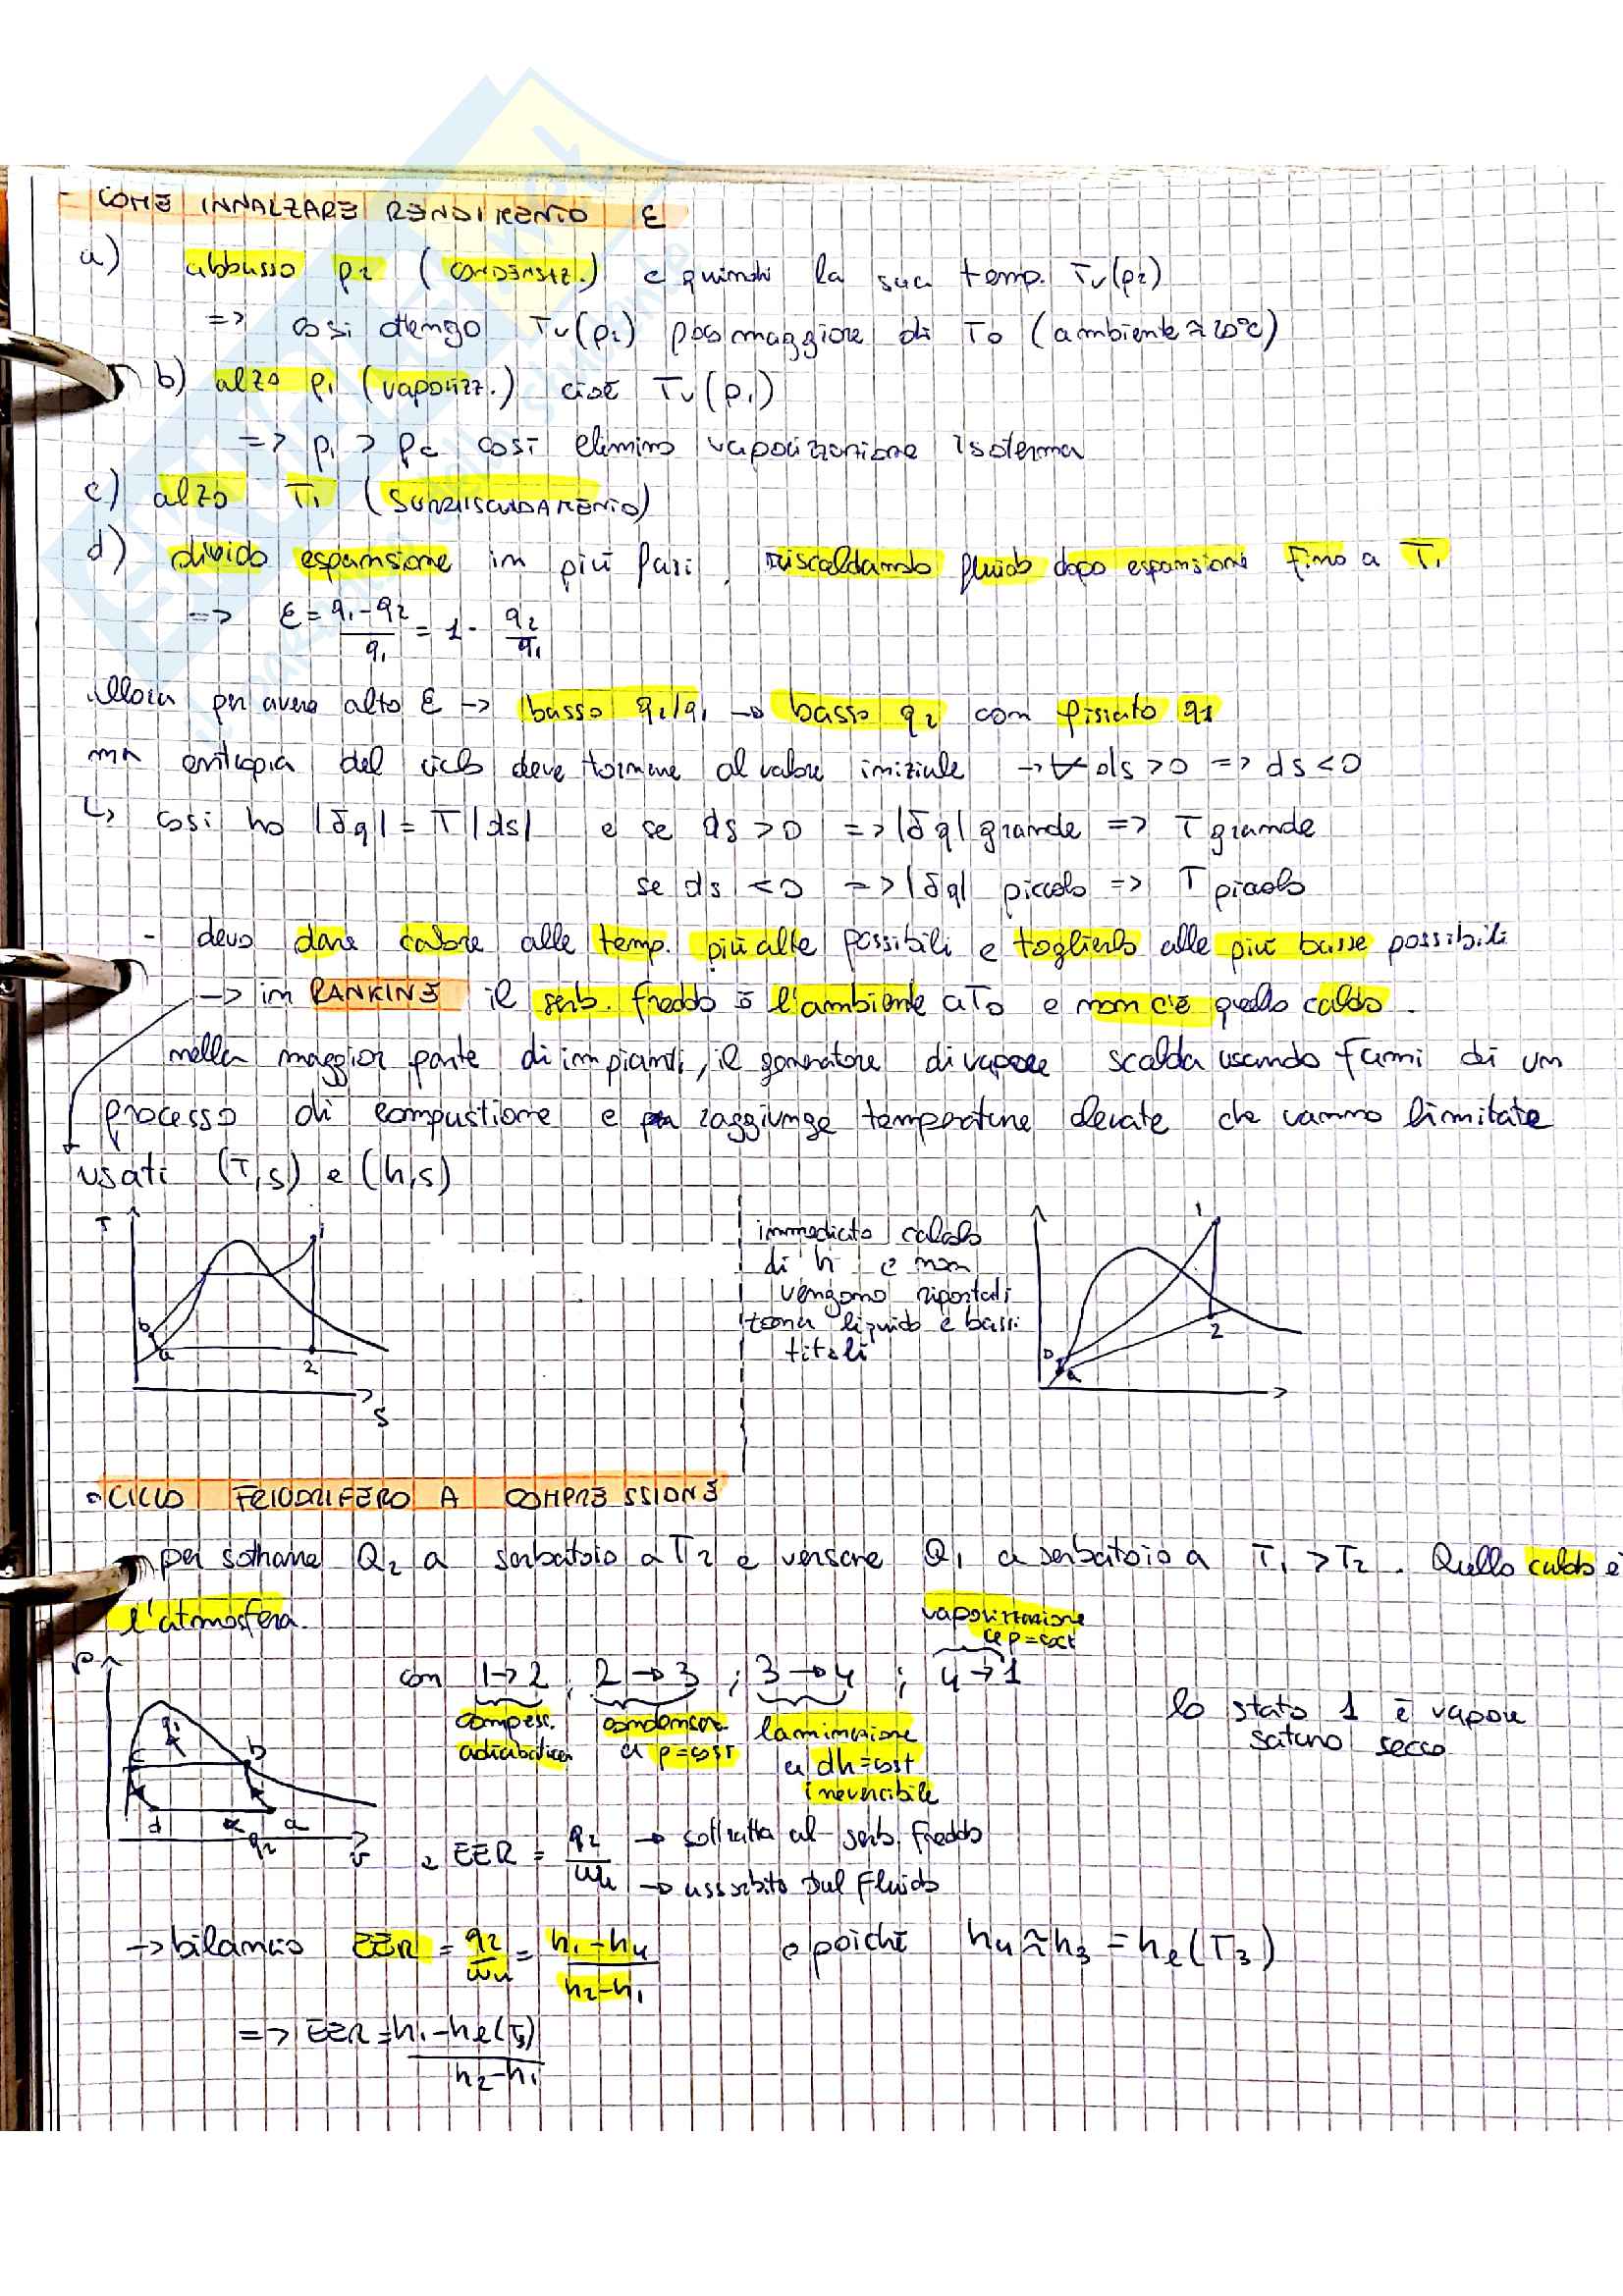 COME INNALZARE RENDIMENTO ε
a) abbasso p2 (CONDENSAZ.) e quindi la sua temp. Tv(p2)
=> così ottengo Tv(p2) poco maggiore di T0 (ambiente ≈ 20°C)
b) alzo p1 (vaporizz.) cioè Tv(p1)
=> p1 > pc così elimino vaporizzazione isoterma
c) alzo T1 (SURRISCALDAMENTO)
d) divido espansione in più fasi, riscaldando fluido dopo espansioni fino a T1
=> ε = (q1-q2)/q1 = 1 - q2/q1
Allora per avere alto ε -> basso q2/q1 -> basso q2 con fissato q1
ma entropia del ciclo deve tornare al valore iniziale -> ∀ ds > 0 => ds < 0
↳ così ho |δq| = T|ds| e se ds > 0 => |δq| grande => T grande
se ds < 0 => |δq| piccolo => T piccolo
- devo dare calore alle temp. più alte possibili e toglierlo alle più basse possibili
-> in RANKINE il serb. freddo è l'ambiente a T0 e non c'è quello caldo.
nella maggior parte di impianti, il generatore di vapore scalda usando fumi di un
processo di combustione e raggiunge temperature elevate che vanno limitate
usati (T,s) e (h,s)
T
1
b
a
2
s
immediato calcolo
di h e non
vengono riportati
zona liquido e bassi
titoli
1
b
a
2
• CICLO FRIGORIFERO A COMPRESSIONE
per sottrarre Q2 a serbatoio a T2 e versare Q1 a serbatoio a T1 > T2. Quello caldo è
l'atmosfera.
con 1->2 ; 2->3 ; 3->4 ; 4->1
vaporizzazione
a p=cost
compress.
adiabatica
condensaz
a p=cost
laminazione
a dh=cost
irreversibile
lo stato 1 è vapore
saturo secco
p
q1
c
b
d
a
q2
v
EER = q2/wu -> sottratta al serb. freddo
-> assorbito dal fluido
-> bilancio EER = q2/wu = (h1-h4)/(h2-h1) e poichè h4 ≈ h3 = hl(T3)
=> EER = (h1-hl(T3))/(h2-h1)